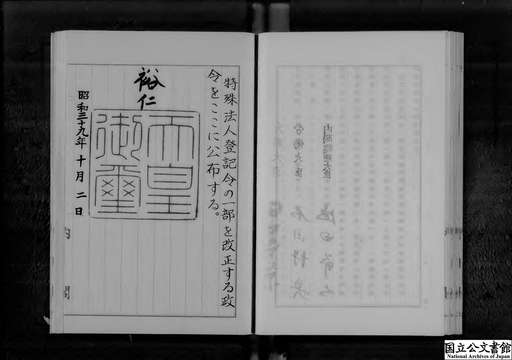 特殊法人登記令の一部を改正する政
令をここに公布する。
裕仁
天皇
御璽
昭和三十九年十月二日
内閣
国立公文書館
National Archives of Japan